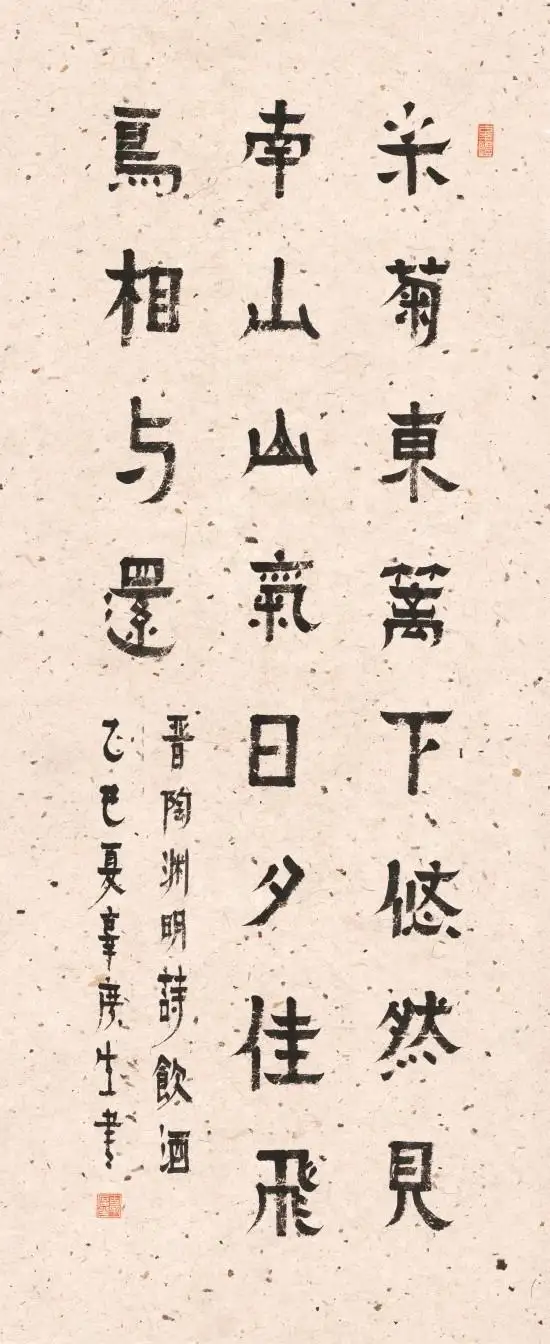 采菊東篱下悠然見
南山山氣日夕佳飛
鳥相与還
晋陶渊明詩飲酒
乙巳夏生書